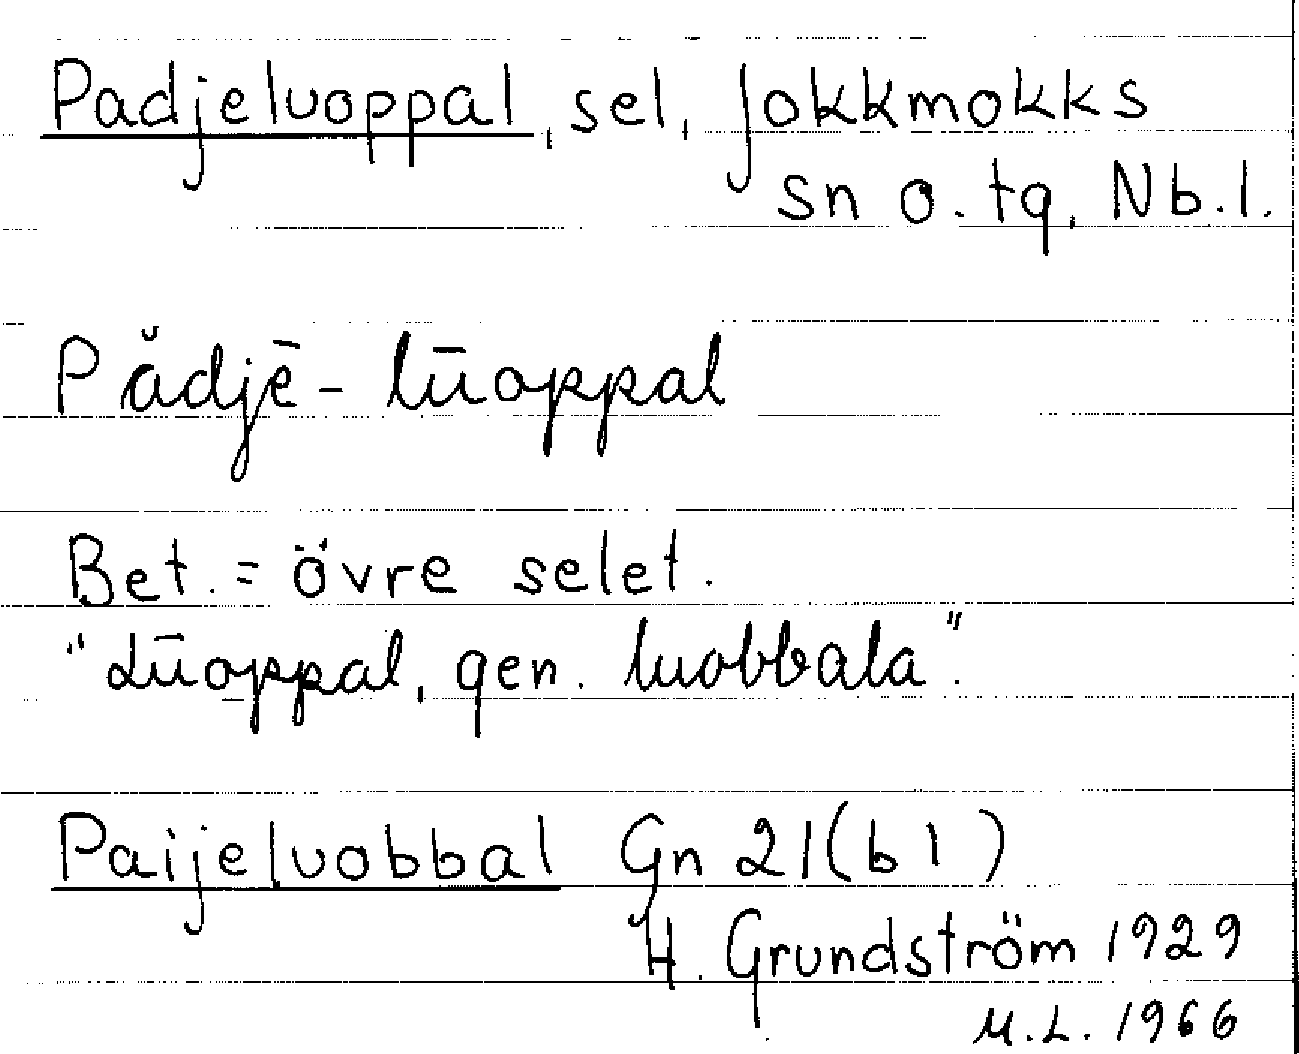 Padjeluoppal, sel, Jokkmokks
sn o. tg, Nb.l.
Pădjē-lūoppal
Bet. = övre selet.
"Lūoppal, gen. luobbala".
Paijeluobbal Gn 21(b1)
H. Grundström 1929
M.L. 1966